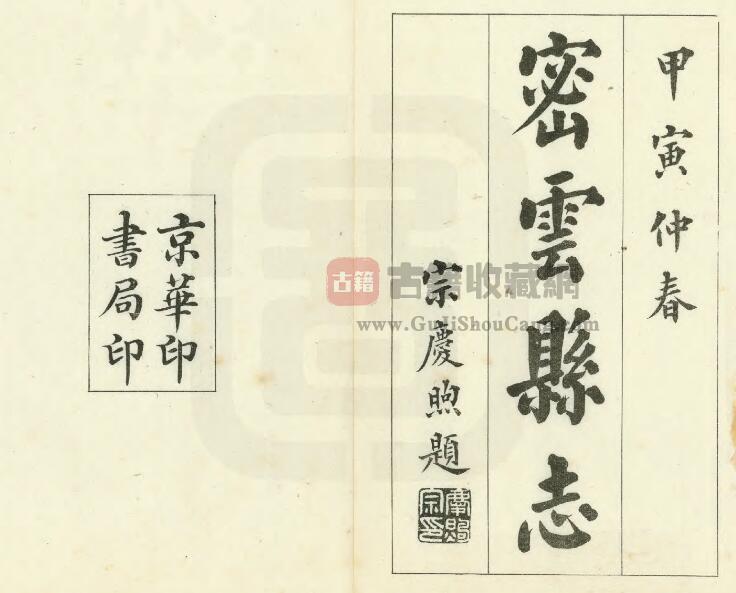 甲寅仲春
密雲縣志
宗慶煦題
慶煦宗印
京華印
書局印
古籍
古籍收藏網
www.GuJiShouCang.com